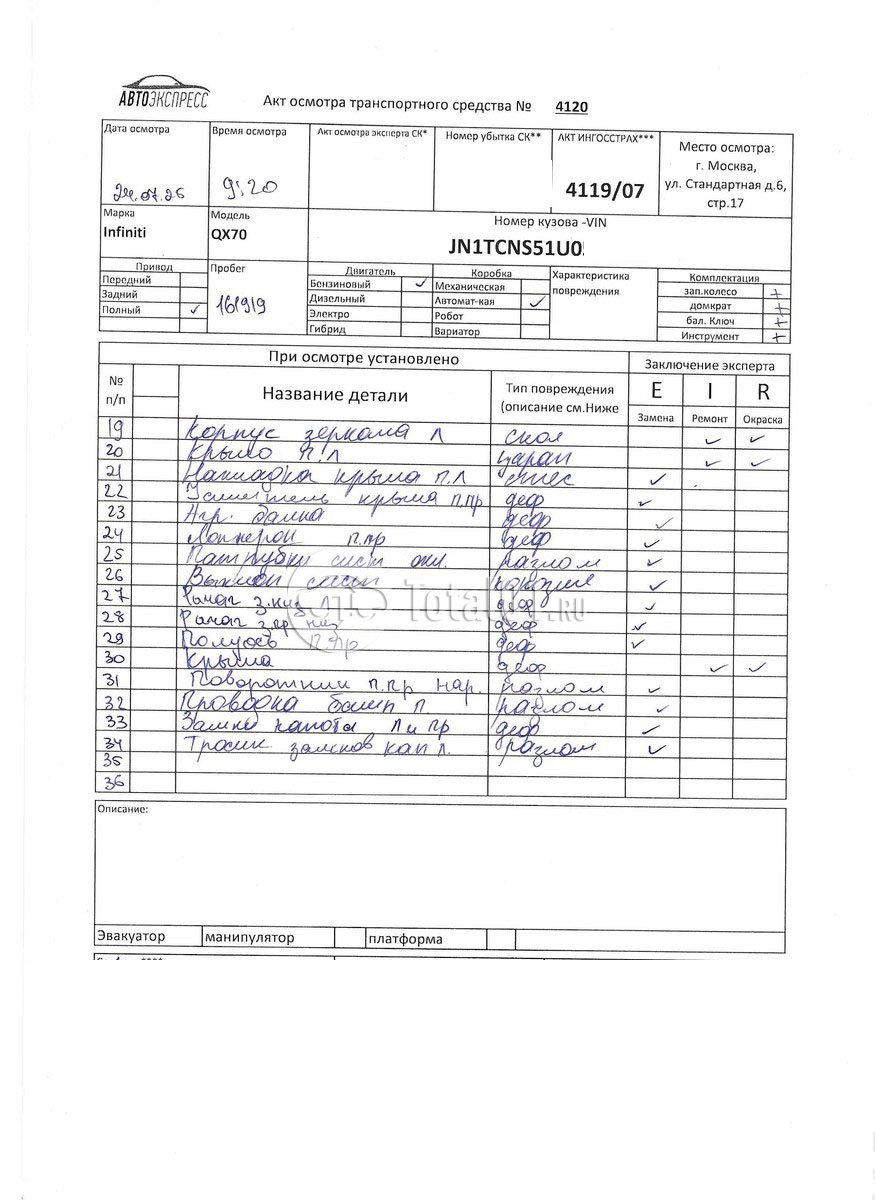 АВТОЭКСПРЕСС
Акт осмотра транспортного средства № 4120
Дата осмотра Время осмотра Акт осмотра эксперта СК* Номер убытка СК** АКТ ИНГОССТРАХ*** Место осмотра:
г. Москва,
24.07.25 9:20 4119/07 ул. Стандартная д.6,
стр.17
Марка Модель Номер кузова -VIN
Infiniti QX70 JN1TCNS51U0
Привод Пробег Двигатель Коробка Характеристика повреждения Комплектация
Передний Бензиновый ✓ Механическая зап.колесо +
Задний 161919 Дизельный Автомат-кая ✓ домкрат +
Полный ✓ Электро Робот бал. Ключ +
Гибрид Вариатор Инструмент +
При осмотре установлено Заключение эксперта
№ п/п Название детали Тип повреждения (описание см.Ниже E I R
Замена Ремонт Окраска
19 Корпус зеркала Л скол ✓ ✓
20 Крыло п.л царап ✓ ✓
21 Накладка крыла п.л ✓
22 крыла п.пр деф ✓
23 деф ✓
24 Лонжерон п.пр деф ✓
25 Патрубки сист охл. разлом ✓
26 сист ✓
27 Рычаг з. Л деф ✓
28 Рычаг з.пр низ деф ✓
29 Полуось п.пр деф ✓
30 Крыша деф ✓ ✓
31 Поворотник п.пр нар. разлом ✓
32 Проводка бамп п разлом ✓
33 Замки капота Л и Пр деф ✓
34 Тросик замков кап л. разлом ✓
35
36
Описание:
Эвакуатор манипулятор платформа
СТО Total01.RU